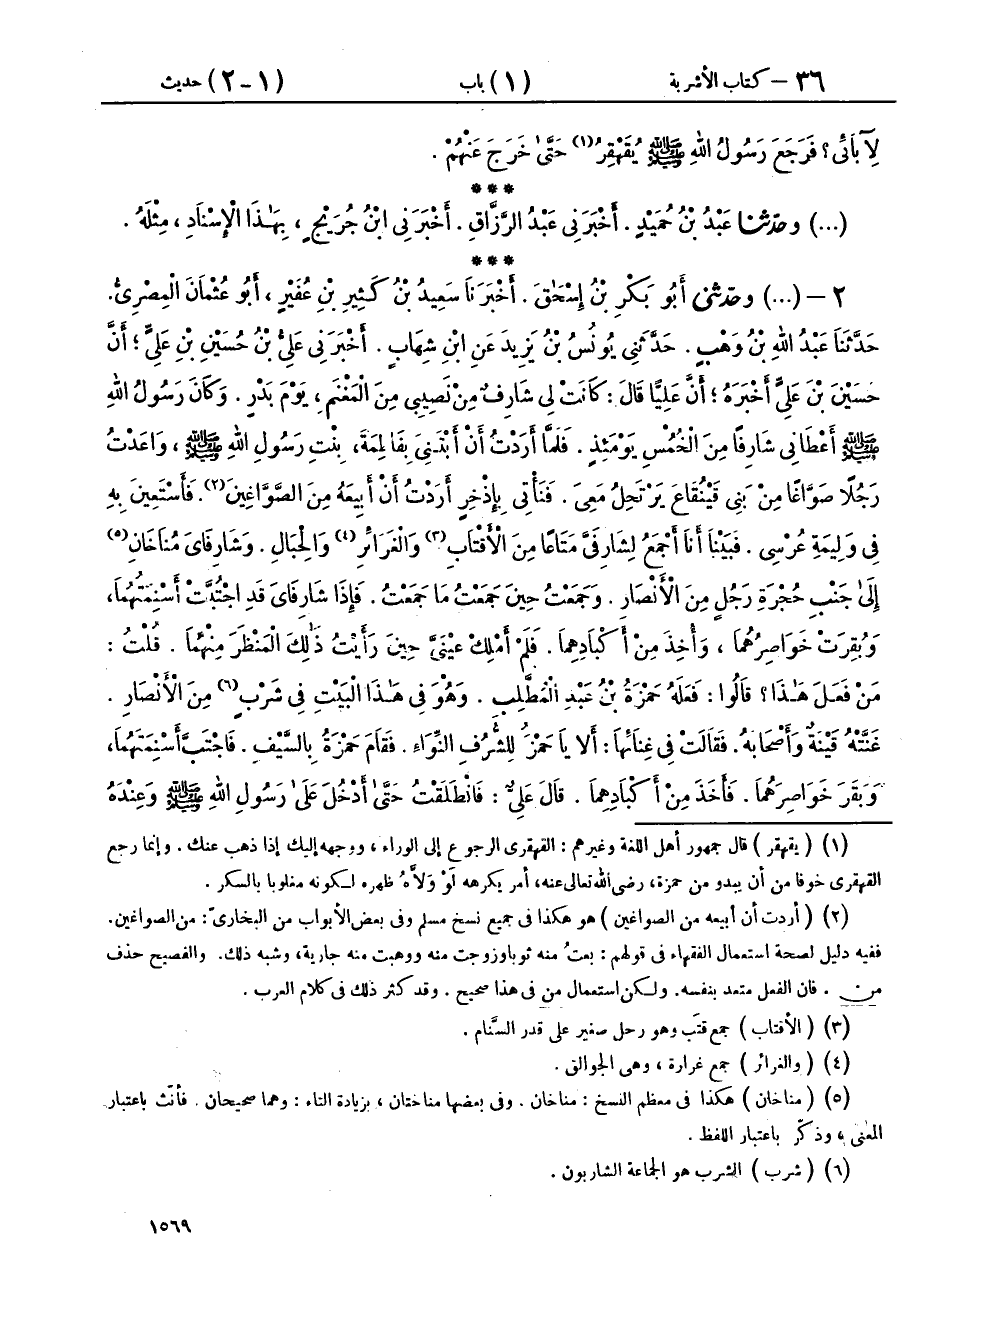 ٣٦ – كتاب الأشربة (١) باب (١-٢) حديث
لِآبَائِى؟ فَرَجَعَ رَسُولُ اللهِ ﷺ يُقَهْقِرُ(١) حَتَّىٰ خَرَجَ عَنْهُمْ .
***
(...) وحدثنا عَبْدُ بْنُ حُمَيْدٍ . أَخْبَرَنِى عَبْدُ الرَّزَّاقِ . أَخْبَرَنِى ابْنُ جُرَيْجٍ ، بِهَٰذَا الْإِسْنَادِ ، مِثْلَهُ .
***
٢ – (...) وحدثنى أَبُو بَكْرِ بْنُ إِسْحَٰقَ . أَخْبَرَنَا سَعِيدُ بْنُ كَثِيرِ بْنِ عُفَيْرٍ ، أَبُو عُثْمَانَ الْمِصْرِىُّ .
حَدَّثَنَا عَبْدُ اللهِ بْنُ وَهْبٍ . حَدَّثَنِى يُونُسُ بْنُ يَزِيدَ عَنِ ابْنِ شِهَابٍ . أَخْبَرَنِى عَلِىُّ بْنُ حُسَيْنِ بْنِ عَلِىٍّ ؛ أَنَّ
حُسَيْنَ بْنَ عَلِىٍّ أَخْبَرَهُ ؛ أَنَّ عَلِيًّا قَالَ : كَانَتْ لِى شَارِفٌ مِنْ نَصِيبِى مِنَ الْمَغْنَمِ ، يَوْمَ بَدْرٍ . وَكَانَ رَسُولُ اللهِ
ﷺ أَعْطَانِى شَارِفًا مِنَ الْخُمُسِ يَوْمَئِذٍ . فَلَمَّا أَرَدْتُ أَنْ أَبْتَنِىَ بِفَاطِمَةَ ، بِنْتِ رَسُولِ اللهِ ﷺ ، وَاعَدْتُ
رَجُلًا صَوَّاغًا مِنْ بَنِى قَيْنُقَاعَ يَرْتَحِلُ مَعِىَ . فَنَأْتِى بِإِذْخِرٍ أَرَدْتُ أَنْ أَبِيعَهُ مِنَ الصَّوَّاغِينَ(٢) . فَأَسْتَعِينَ بِهِ
فِى وَلِيمَةِ عُرْسِى . فَبَيْنَا أَنَا أَجْمَعُ لِشَارِفَىَّ مَتَاعًا مِنَ الْأَقْتَابِ(٣) وَالْغَرَائِرِ(٤) وَالْحِبَالِ . وَشَارِفَاىَ مُنَاخَانِ(٥)
إِلَىٰ جَنْبِ حُجْرَةِ رَجُلٍ مِنَ الْأَنْصَارِ . وَجَمَعْتُ حِينَ جَمَعْتُ مَا جَمَعْتُ . فَإِذَا شَارِفَاىَ قَدِ اجْتُبَّتْ أَسْنِمَتُهُمَا ،
وَبُقِرَتْ خَوَاصِرُهُمَا ، وَأُخِذَ مِنْ أَكْبَادِهِمَا . فَلَمْ أَمْلِكْ عَيْنَىَّ حِينَ رَأَيْتُ ذَٰلِكَ الْمَنْظَرَ مِنْهُمَا . قُلْتُ :
مَنْ فَعَلَ هَٰذَا ؟ قَالُوا : فَعَلَهُ حَمْزَةُ بْنُ عَبْدِ الْمُطَّلِبِ . وَهُوَ فِى هَٰذَا الْبَيْتِ فِى شَرْبٍ(٦) مِنَ الْأَنْصَارِ .
غَنَّتْهُ قَيْنَةٌ وَأَصْحَابَهُ . فَقَالَتْ فِى غِنَائِهَا : أَلَا يَا حَمْزُ لِلشُّرُفِ النِّوَاءِ . فَقَامَ حَمْزَةُ بِالسَّيْفِ . فَاجْتَبَّ أَسْنِمَتَهُمَا ،
وَبَقَرَ خَوَاصِرَهُمَا . فَأَخَذَ مِنْ أَكْبَادِهِمَا . قَالَ عَلِىٌّ : فَانْطَلَقْتُ حَتَّىٰ أَدْخُلَ عَلَىٰ رَسُولِ اللهِ ﷺ وَعِنْدَهُ
(١) ( يقهقر ) قال جمهور أهل اللغة وغيرهم : القهقرى الرجوع إلى الوراء ، ووجهه إليك إذا ذهب عنك . وإنما رجع
القهقرى خوفا من أن يبدو من حمزة ، رضى الله تعالى عنه ، أمر يكرهه لَوْ وَلَّاهُ ظهره لكونه مغلوبا بالسكر .
(٢) ( أردت أن أبيعه من الصواغين ) هو هكذا فى جميع نسخ مسلم وفى بعض الأبواب من البخارىّ : من الصواغين .
ففيه دليل لصحة استعمال الفقهاء فى قولهم : بعتُ منه ثوبا وزوجت منه ووهبت منه جارية ، وشبه ذلك . والفصيح حذف
من . فان الفعل متعد بنفسه . ولكن استعمال من فى هذا صحيح . وقد كثر ذلك فى كلام العرب .
(٣) ( الأقتاب ) جمع قتَب وهو رحل صغير على قدر السَّنام .
(٤) ( والغرائر ) جمع غرارة ، وهى الجوالق .
(٥) ( مناخان ) هكذا فى معظم النسخ : مناخان . وفى بعضها مناختان ، بزيادة التاء : وهما صحيحان . فأنَّث باعتبار
المعنى ، وذكّر باعتبار اللفظ .
(٦) ( شرب ) الشرب هو الجماعة الشاربون .
١٥٦٩